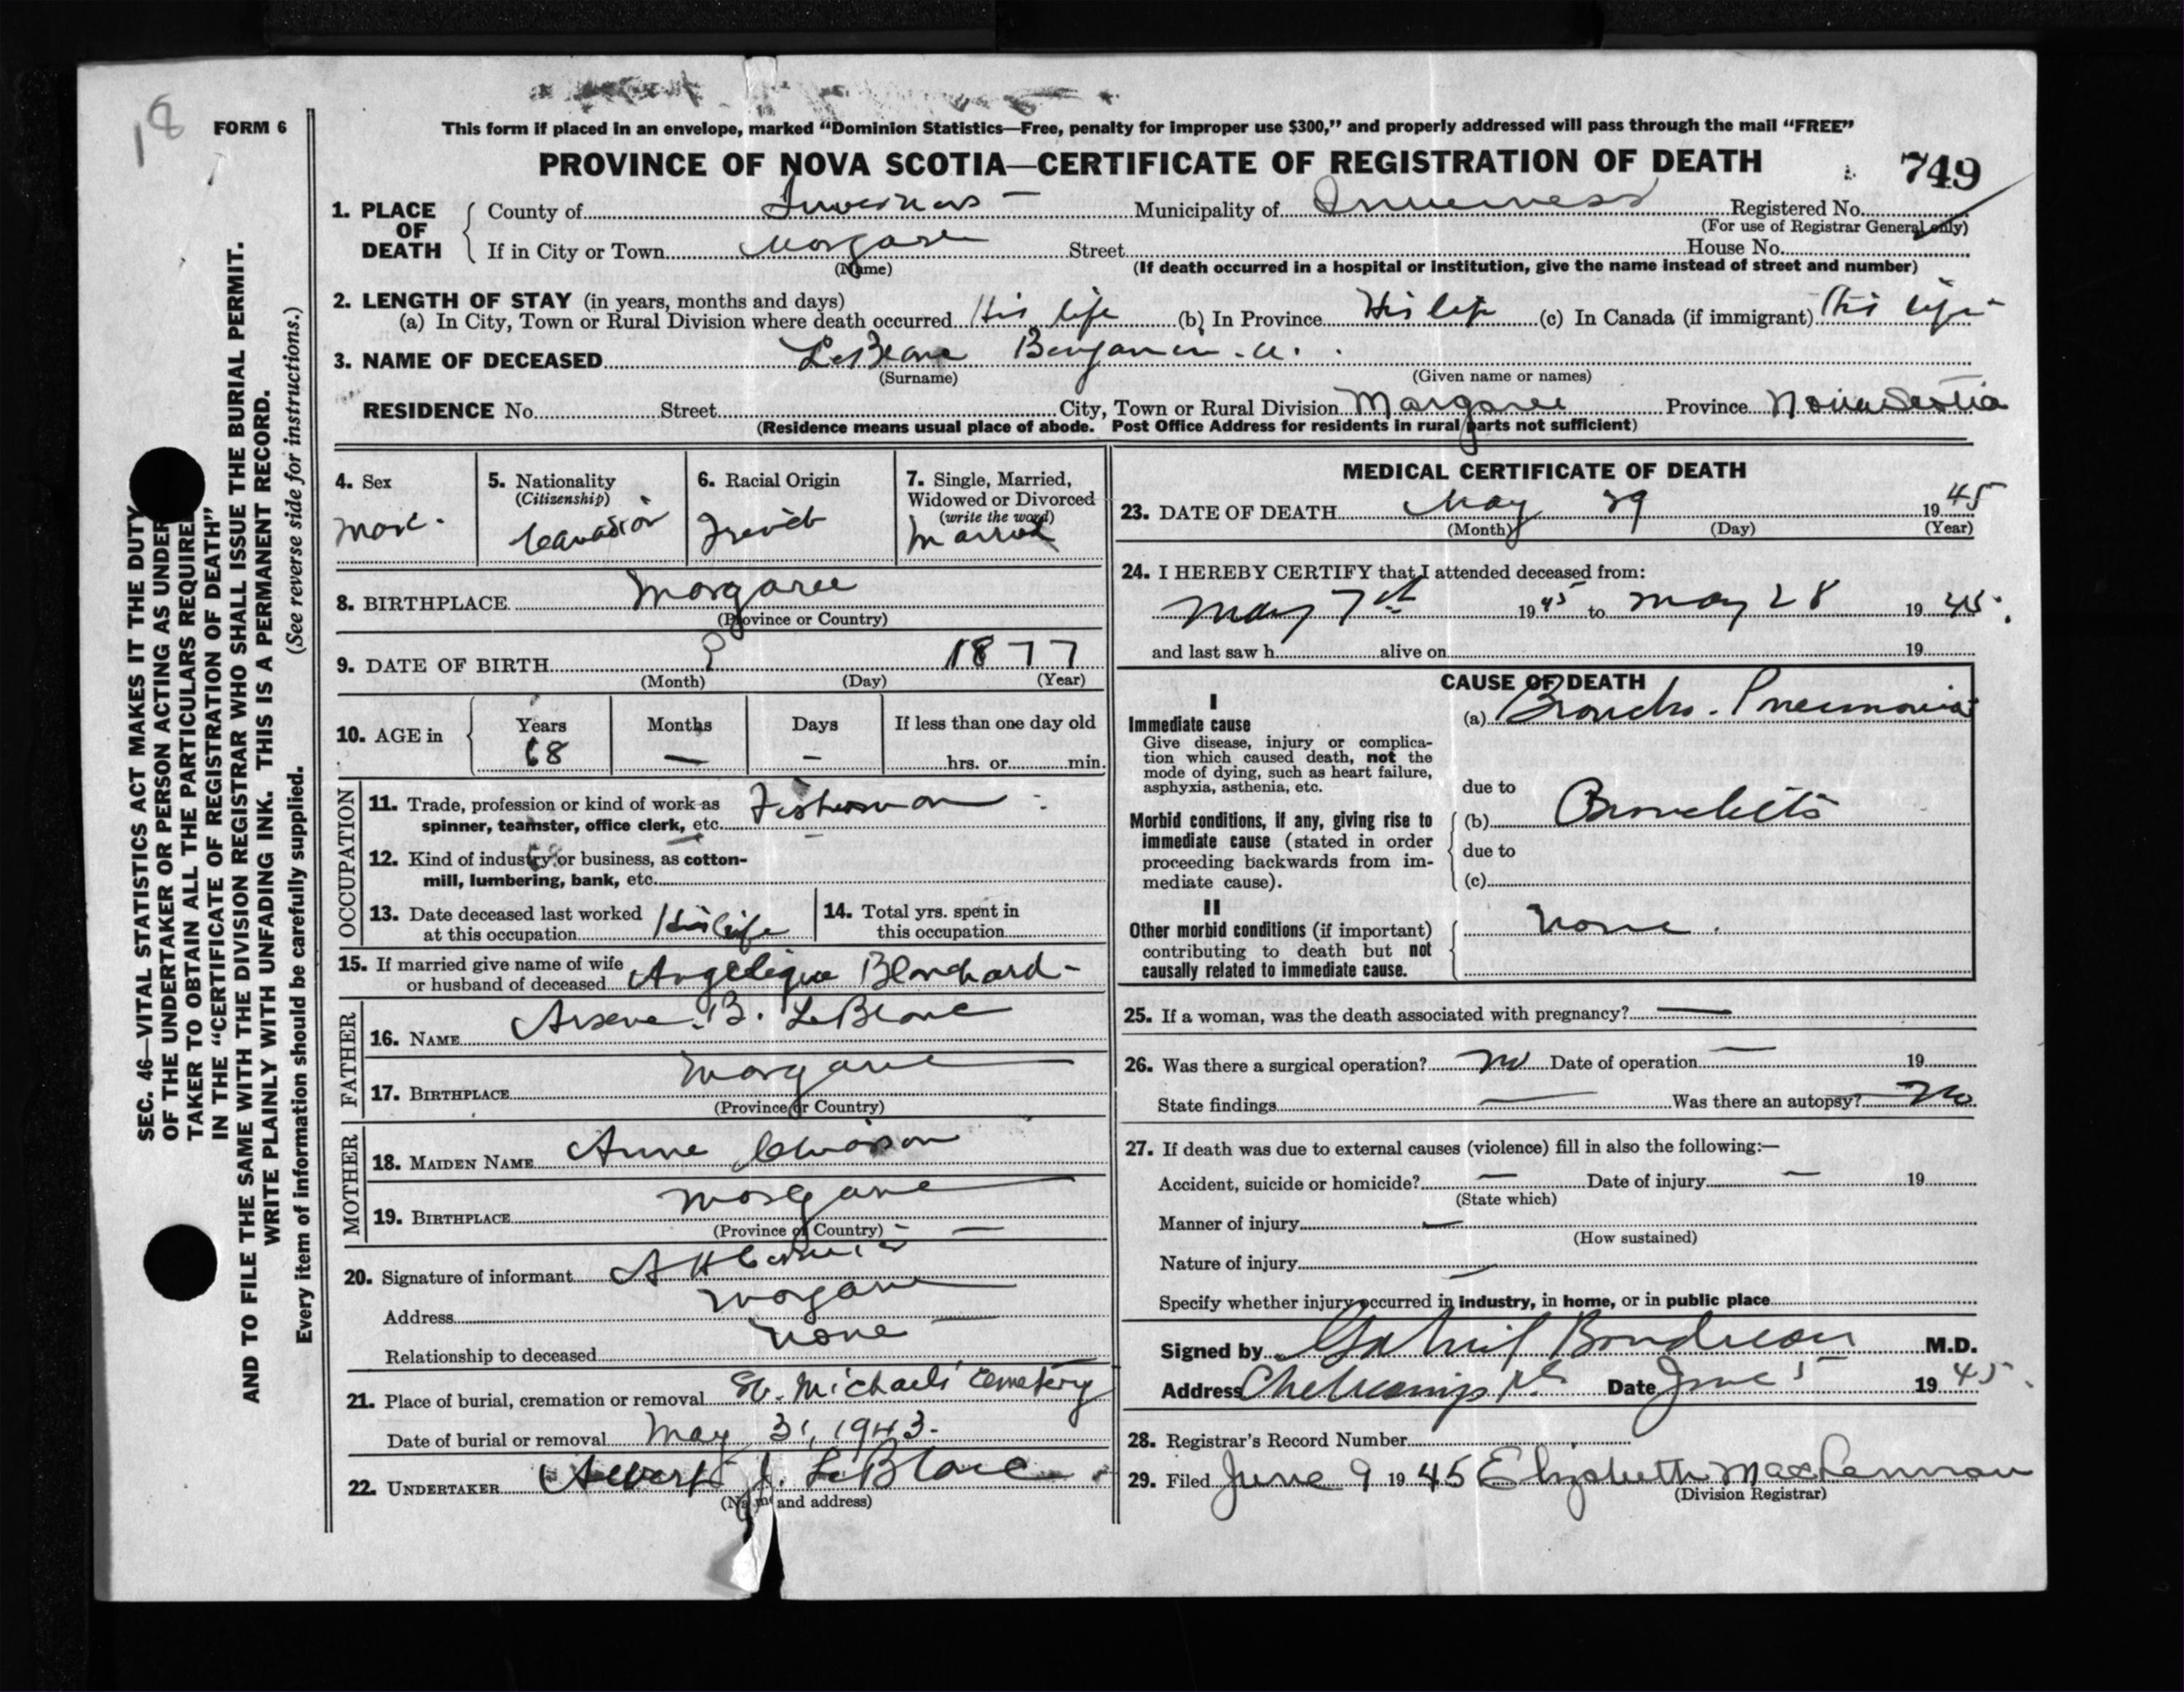 18
FORM 6
This form if placed in an envelope, marked “Dominion Statistics—Free, penalty for improper use $300,” and properly addressed will pass through the mail “FREE”
PROVINCE OF NOVA SCOTIA—CERTIFICATE OF REGISTRATION OF DEATH 749
1. PLACE OF DEATH
County of Inverness Municipality of Inverness Registered No.
(For use of Registrar General only)
If in City or Town Margaree Street House No.
(Name) (If death occurred in a hospital or institution, give the name instead of street and number)
2. LENGTH OF STAY (in years, months and days)
(a) In City, Town or Rural Division where death occurred His life (b) In Province His life (c) In Canada (if immigrant) His life
3. NAME OF DECEASED LeBlanc Benjamin. A.
(Surname) (Given name or names)
RESIDENCE No. Street City, Town or Rural Division Margaree Province Nova Scotia
(Residence means usual place of abode. Post Office Address for residents in rural parts not sufficient)
SEC. 46—VITAL STATISTICS ACT MAKES IT THE DUTY
OF THE UNDERTAKER OR PERSON ACTING AS UNDER
TAKER TO OBTAIN ALL THE PARTICULARS REQUIRE
IN THE “CERTIFICATE OF REGISTRATION OF DEATH”
AND TO FILE THE SAME WITH THE DIVISION REGISTRAR WHO SHALL ISSUE THE BURIAL PERMIT.
WRITE PLAINLY WITH UNFADING INK. THIS IS A PERMANENT RECORD.
Every item of information should be carefully supplied. (See reverse side for instructions.)
4. Sex
Male.
5. Nationality
(Citizenship)
Canadian
6. Racial Origin
French
7. Single, Married,
Widowed or Divorced
(write the word)
Married
8. BIRTHPLACE Margaree
(Province or Country)
9. DATE OF BIRTH ? 1877
(Month) (Day) (Year)
10. AGE in
Years Months Days If less than one day old
68 — — hrs. or min.
OCCUPATION
11. Trade, profession or kind of work as
spinner, teamster, office clerk, etc. Fisherman
12. Kind of industry or business, as cotton-
mill, lumbering, bank, etc.
13. Date deceased last worked
at this occupation His life
14. Total yrs. spent in
this occupation
15. If married give name of wife
or husband of deceased Angelique Blanchard
FATHER
16. NAME Arsene. B. LeBlanc
17. BIRTHPLACE Margaree
(Province or Country)
MOTHER
18. MAIDEN NAME Anne
19. BIRTHPLACE Margaree
(Province or Country)
20. Signature of informant A H
Address Margaree
Relationship to deceased None
21. Place of burial, cremation or removal St. Michaels' Cemetery
Date of burial or removal May 31, 1943.
22. UNDERTAKER Albert J. LeBlanc
(Name and address)
MEDICAL CERTIFICATE OF DEATH
23. DATE OF DEATH May 29 1945
(Month) (Day) (Year)
24. I HEREBY CERTIFY that I attended deceased from:
May 7th 1945 to May 28 1945.
and last saw h alive on 19
CAUSE OF DEATH
I
Immediate cause
Give disease, injury or complica-
tion which caused death, not the
mode of dying, such as heart failure,
asphyxia, asthenia, etc.
(a) Broncho. Pneumonia
due to
Morbid conditions, if any, giving rise to
immediate cause (stated in order
proceeding backwards from im-
mediate cause).
(b) Bronchitis
due to
(c)
II
Other morbid conditions (if important)
contributing to death but not
causally related to immediate cause.
None.
25. If a woman, was the death associated with pregnancy? —
26. Was there a surgical operation? No Date of operation — 19
State findings — Was there an autopsy? No
27. If death was due to external causes (violence) fill in also the following:—
Accident, suicide or homicide? — Date of injury — 19
(State which)
Manner of injury —
(How sustained)
Nature of injury —
Specify whether injury occurred in industry, in home, or in public place
Signed by Gabriel Boudreau M.D.
Address Cheticamp NS Date June 5 1945.
28. Registrar's Record Number
29. Filed June 9 1945 Elizabeth MacLennan
(Division Registrar)